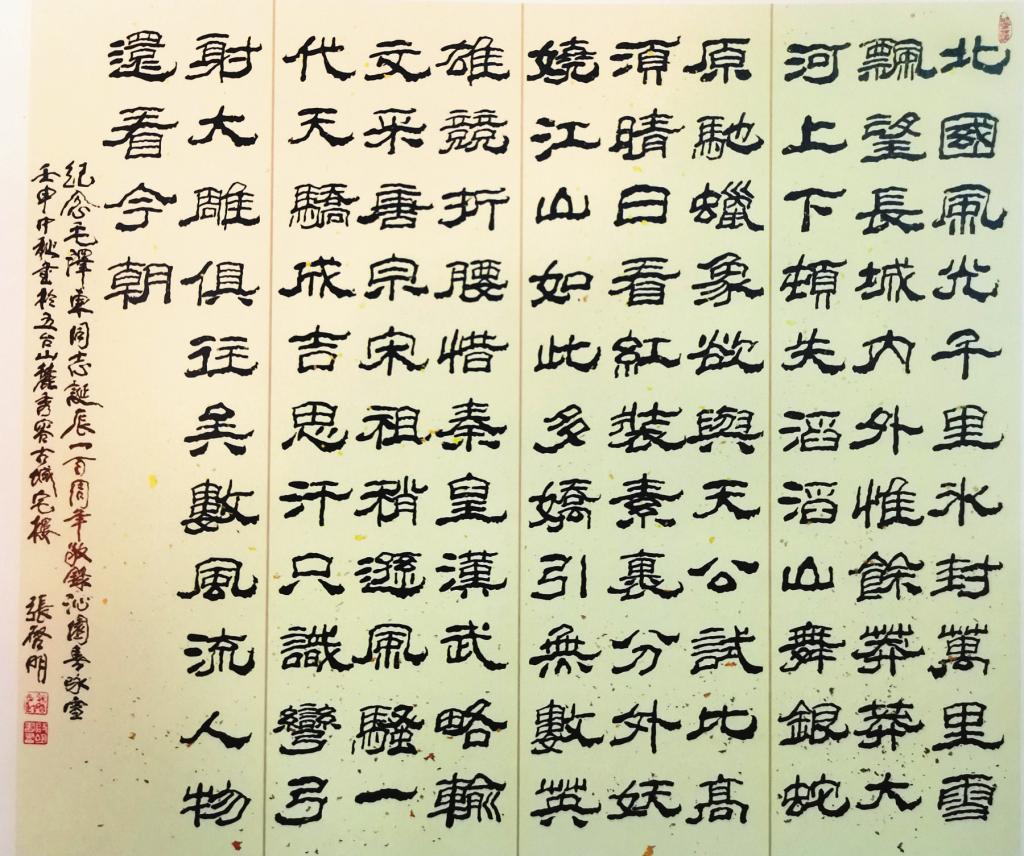 北國風光千里冰封萬里雪
飄望長城內外惟餘莽莽大
河上下頓失滔滔山舞銀蛇
原馳蠟象欲與天公試比高
須晴日看紅裝素裹分外妖
嬈江山如此多嬌引無數英
雄競折腰惜秦皇漢武略輸
文采唐宗宋祖稍遜風騷一
代天驕成吉思汗只識彎弓
射大雕俱往矣數風流人物
還看今朝
紀念毛澤東同志誕辰一百周年敬錄沁園春詠雪
壬申仲秋書於五台山麓秀容古城宅樓 張啓明